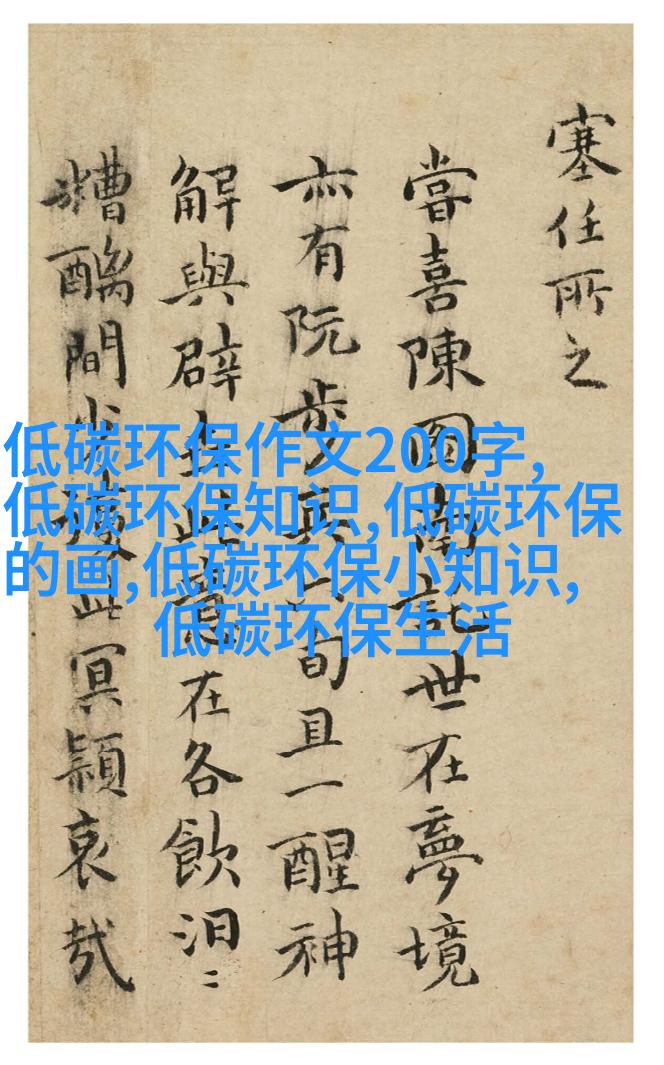 塞任所之
嘗喜陳圖南託世在夢境
亦有阮步兵 旬且一醒神
解與辟 此意在各飲汨〻
糟醨間 此冥顓哀哉
低碳环保作文200字,
低碳环保知识,低碳环保
的画,低碳环保小知识,
低碳环保生活